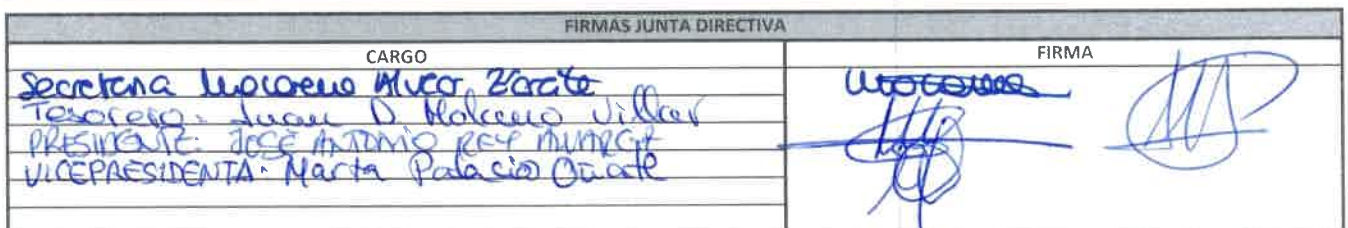 FIRMAS JUNTA DIRECTIVA
CARGO
FIRMA
Secretaria Macarena Zarate
Tesorero: Juan D. Villar
PRESIDENTE: JOSÉ ANTONIO REY
VICEPRESIDENTA: Marta Palacio Oñate
Macarena